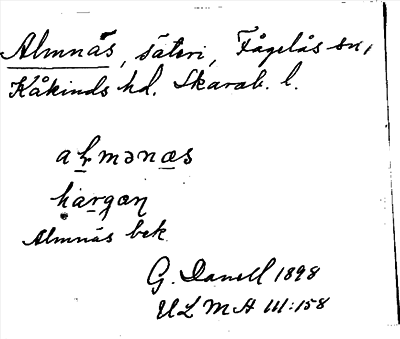 Almnäs, säteri, Fågelås sn,
Kåkinds hd. Skarab. l.
Almnäs bek
G. Danell 1898
ULMA III:158